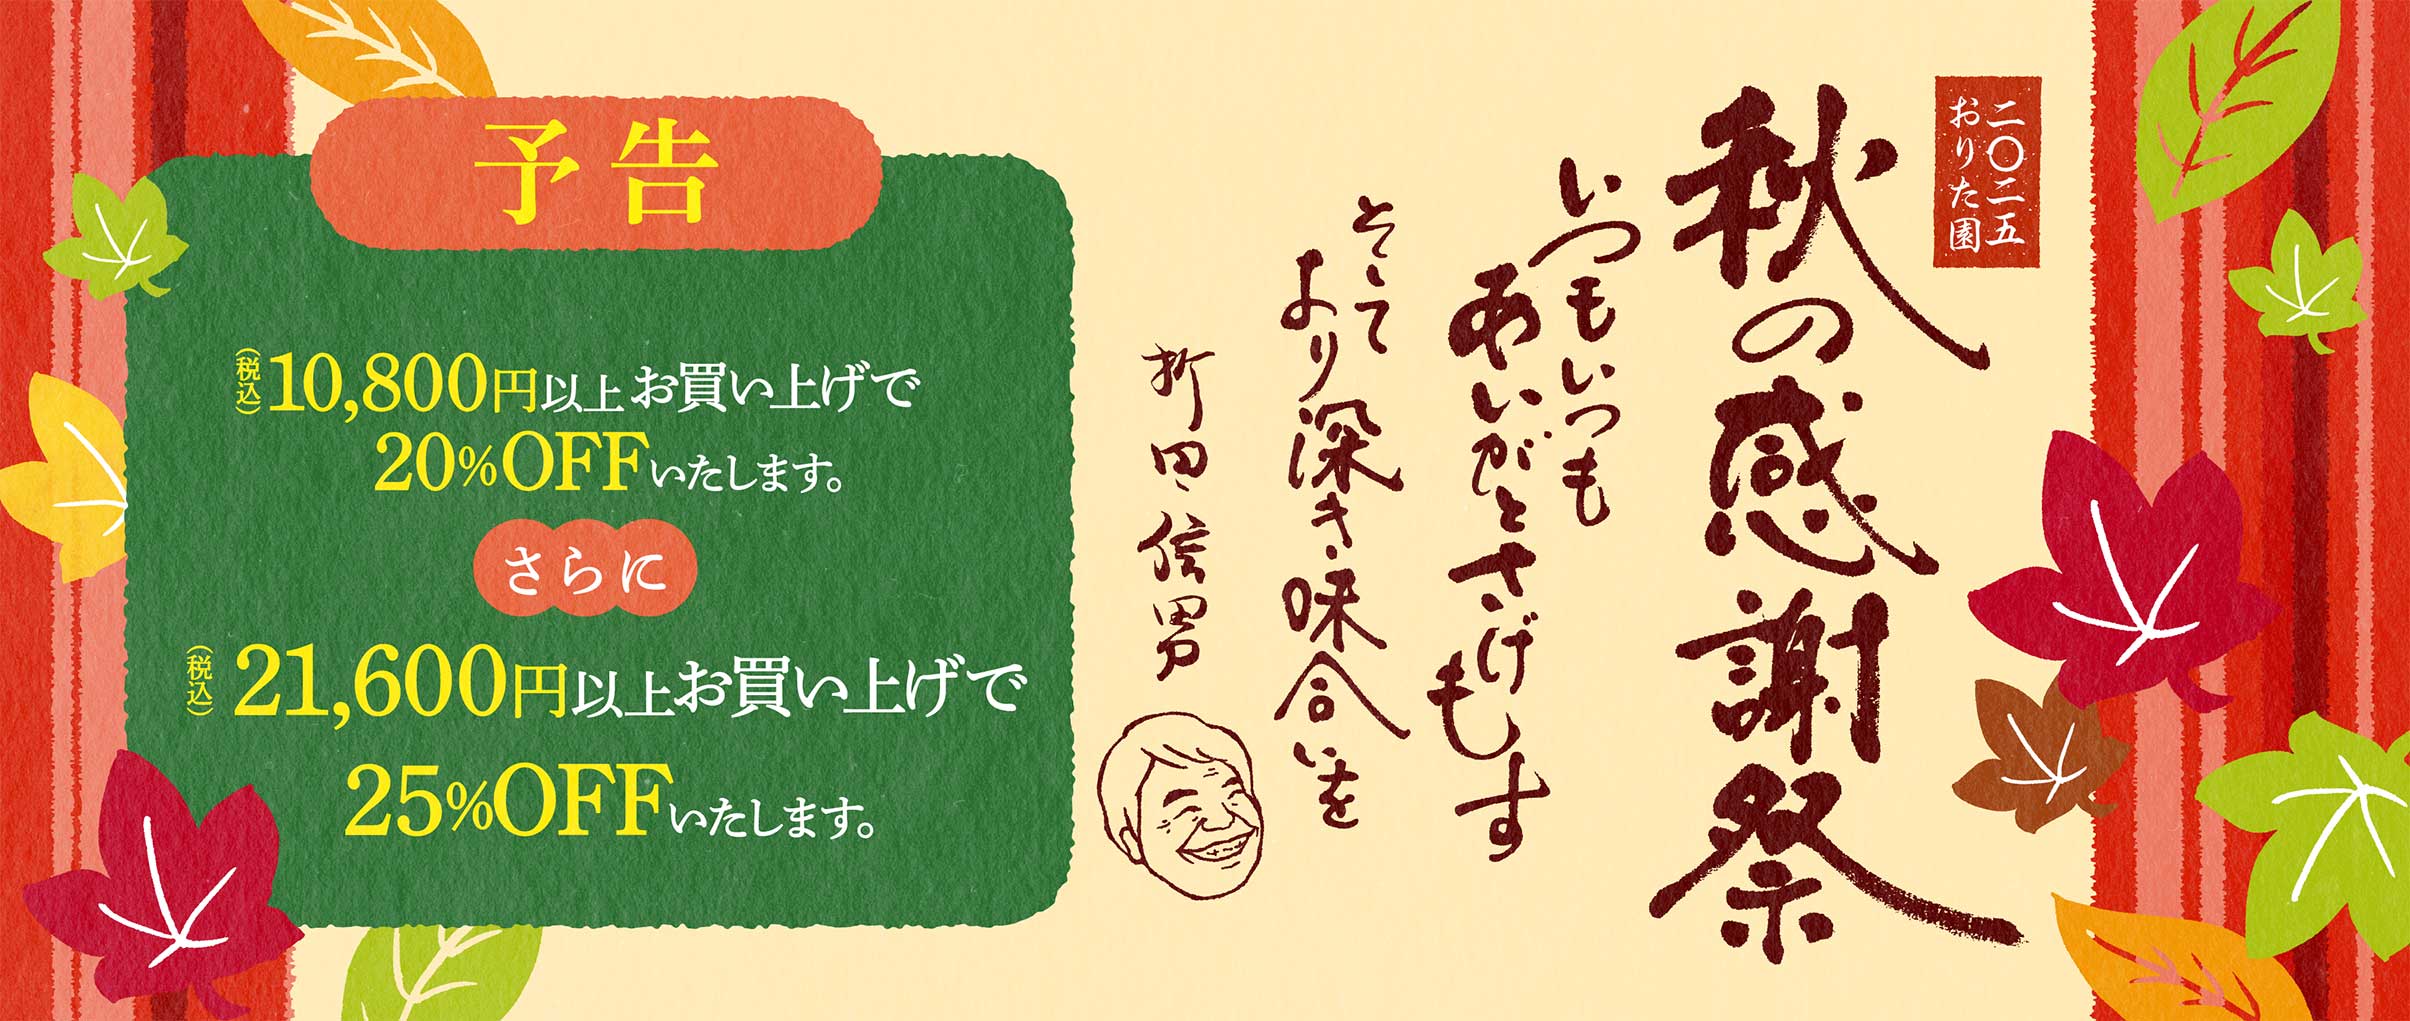 二〇二五
おりた園
秋の感謝祭
いつもいつも
あいがとさげもす
そして
より深き味合いを
折田信男
予告
(税込)10,800円以上お買い上げで
20%OFFいたします。
さらに
(税込)21,600円以上お買い上げで
25%OFFいたします。